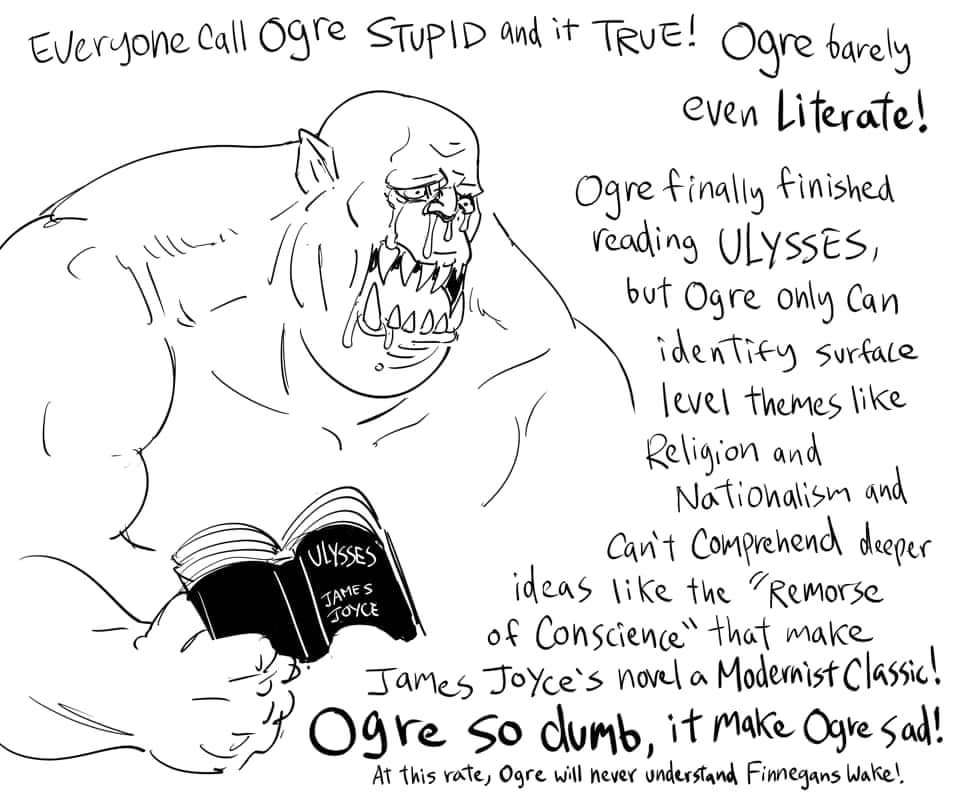 Everyone Call Ogre STUPID and it TRUE! Ogre barely
even Literate!
Ogre finally finished
reading ULYSSES,
but Ogre only can
identify surface
level themes like
Religion and
Nationalism and
Can't Comprehend deeper
ideas like the "Remorse
of Conscience" that make
James Joyce's novel a Modernist Classic!
Ogre so dumb, it make Ogre sad!
At this rate, Ogre will never understand Finnegans Wake!
ULYSSES
JAMES
JOYCE